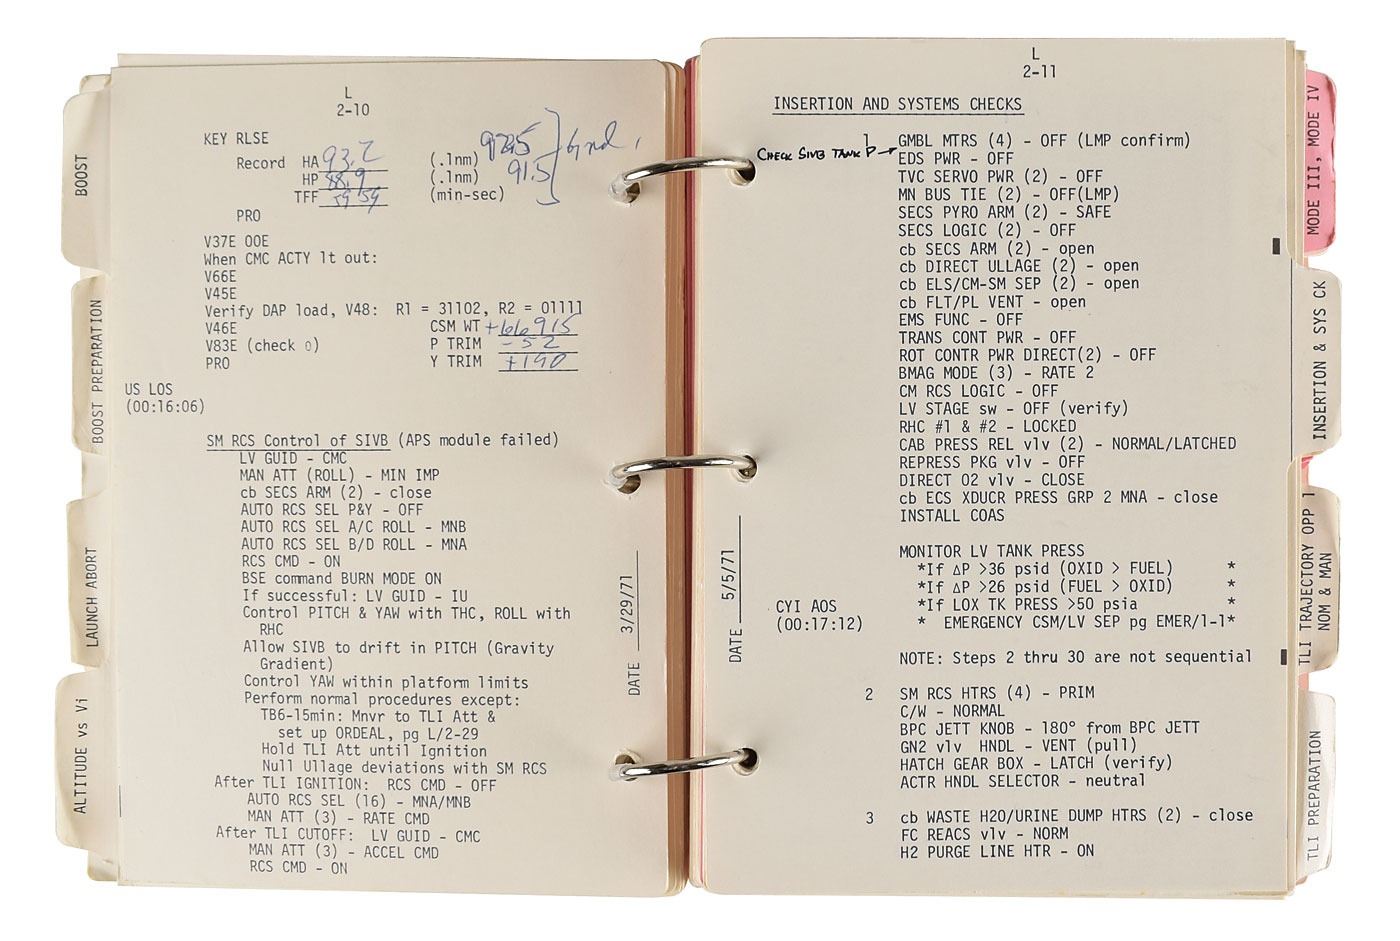 BOOST
BOOST PREPARATION
LAUNCH ABORT
ALTITUDE vs Vi
L
2-10
KEY RLSE
Record HA 93.2 (.1nm) 92.5
HP 88.9 (.1nm) 91.5
TFF 59 59 (min-sec)
PRO
V37E 00E
When CMC ACTY lt out:
V66E
V45E
Verify DAP load, V48: R1 = 31102, R2 = 01111
V46E CSM WT +66915
V83E (check 0) P TRIM -52
PRO Y TRIM +190
US LOS
(00:16:06)
SM RCS Control of SIVB (APS module failed)
LV GUID - CMC
MAN ATT (ROLL) - MIN IMP
cb SECS ARM (2) - close
AUTO RCS SEL P&Y - OFF
AUTO RCS SEL A/C ROLL - MNB
AUTO RCS SEL B/D ROLL - MNA
RCS CMD - ON
BSE command BURN MODE ON
If successful: LV GUID - IU
Control PITCH & YAW with THC, ROLL with
RHC
Allow SIVB to drift in PITCH (Gravity
Gradient)
Control YAW within platform limits
Perform normal procedures except:
TB6-15min: Mnvr to TLI Att &
set up ORDEAL, pg L/2-29
Hold TLI Att until Ignition
Null Ullage deviations with SM RCS
After TLI IGNITION: RCS CMD - OFF
AUTO RCS SEL (16) - MNA/MNB
MAN ATT (3) - RATE CMD
After TLI CUTOFF: LV GUID - CMC
MAN ATT (3) - ACCEL CMD
RCS CMD - ON
DATE 3/29/71
L
2-11
INSERTION AND SYSTEMS CHECKS
1 GMBL MTRS (4) - OFF (LMP confirm)
CHECK SIVB TANK P → EDS PWR - OFF
TVC SERVO PWR (2) - OFF
MN BUS TIE (2) - OFF(LMP)
SECS PYRO ARM (2) - SAFE
SECS LOGIC (2) - OFF
cb SECS ARM (2) - open
cb DIRECT ULLAGE (2) - open
cb ELS/CM-SM SEP (2) - open
cb FLT/PL VENT - open
EMS FUNC - OFF
TRANS CONT PWR - OFF
ROT CONTR PWR DIRECT(2) - OFF
BMAG MODE (3) - RATE 2
CM RCS LOGIC - OFF
LV STAGE sw - OFF (verify)
RHC #1 & #2 - LOCKED
CAB PRESS REL vlv (2) - NORMAL/LATCHED
REPRESS PKG vlv - OFF
DIRECT O2 vlv - CLOSE
cb ECS XDUCR PRESS GRP 2 MNA - close
INSTALL COAS
MONITOR LV TANK PRESS
*If ΔP >36 psid (OXID > FUEL) *
*If ΔP >26 psid (FUEL > OXID) *
*If LOX TK PRESS >50 psia *
* EMERGENCY CSM/LV SEP pg EMER/1-1*
CYI AOS
(00:17:12)
NOTE: Steps 2 thru 30 are not sequential
2 SM RCS HTRS (4) - PRIM
C/W - NORMAL
BPC JETT KNOB - 180° from BPC JETT
GN2 vlv HNDL - VENT (pull)
HATCH GEAR BOX - LATCH (verify)
ACTR HNDL SELECTOR - neutral
3 cb WASTE H2O/URINE DUMP HTRS (2) - close
FC REACS vlv - NORM
H2 PURGE LINE HTR - ON
DATE 5/5/71
MODE III, MODE IV
INSERTION & SYS CK
TLI TRAJECTORY OPP 1
NOM & MAN
TLI PREPARATION